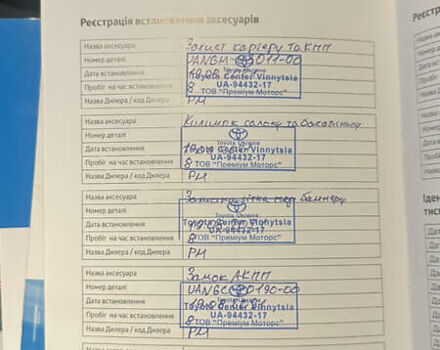 Реєстрація встановлення аксесуарів
Назва аксесуара Захист картеру та КПП
Номер деталі UANGM 011-00
Дата встановлення
Toyota Center Vinnytsia
Пробіг на час встановлення 8 UA-94432-17
ТОВ "Преміум Моторс"
Назва Дилера / код Дилера РМ
Назва аксесуара Килимок салону та багажнику
Номер деталі
Toyota Ukraine
Дата встановлення Toyota Center Vinnytsia
Пробіг на час встановлення 8 UA-94432-17
ТОВ "Преміум Моторс"
Назва Дилера / код Дилера РМ
Назва аксесуара Захисна бамперу
Номер деталі
Toyota Ukraine
Дата встановлення Toyota Center Vinnytsia
UA-94432-17
Пробіг на час встановлення 8 ТОВ "Преміум Моторс"
Назва Дилера / код Дилера РМ
Назва аксесуара Замок АКПП
Номер деталі UANGC 0190-00
Дата встановлення
Toyota Center Vinnytsia
Пробіг на час встановлення 8 UA-94432-17
Назва Дилера / код Дилера РМ ТОВ "Преміум Моторс"
Назва аксесуара
Реєстр
Іден
тис